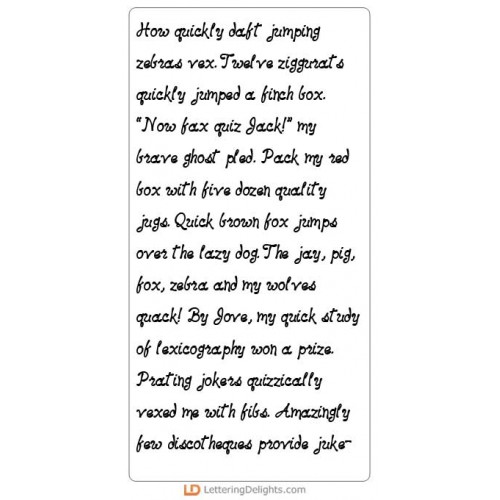 How quickly daft jumping
zebras vex. Twelve ziggurats
quickly jumped a finch box.
"Now fax quiz Jack!" my
brave ghost pled. Pack my red
box with five dozen quality
jugs. Quick brown fox jumps
over the lazy dog. The jay, pig,
fox, zebra and my wolves
quack! By Jove, my quick study
of lexicography won a prize.
Prating jokers quizzically
vexed me with fibs. Amazingly
few discotheques provide juke-
LD LetteringDelights.com